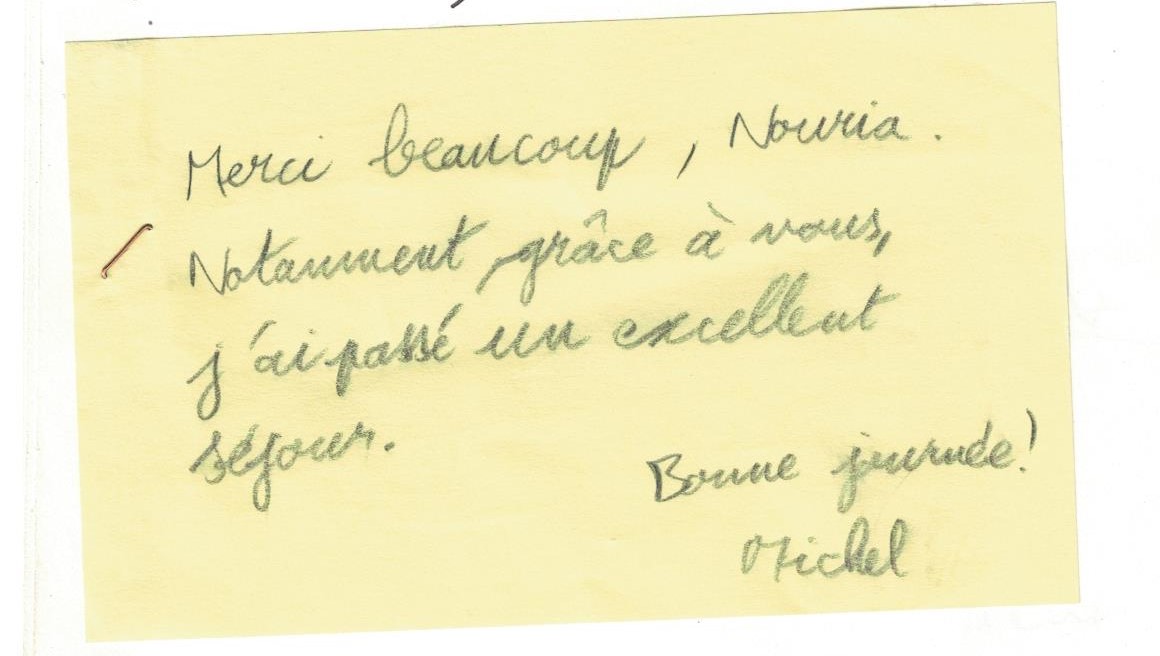 Merci beaucoup, Nouria.
Notamment grâce à vous,
j'ai passé un excellent
séjour.
Bonne journée!
Michel